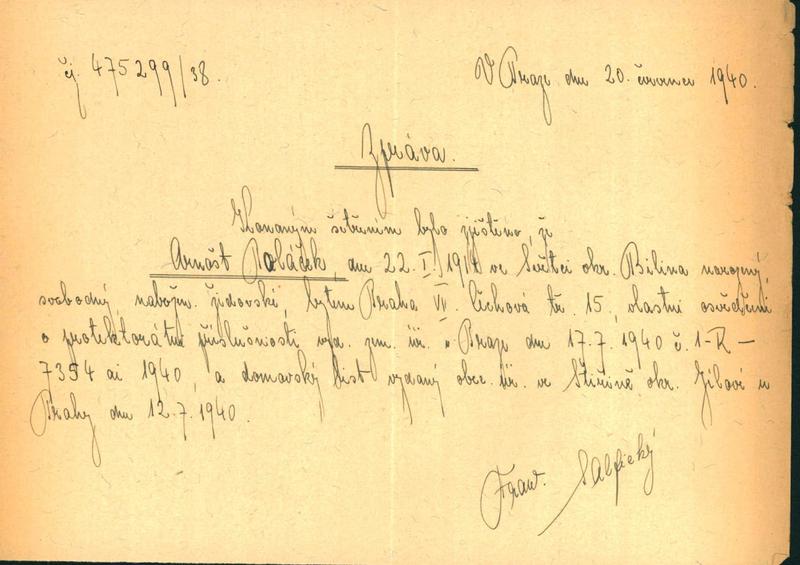 čj. 475299/38.
V Praze dne 20. července 1940.
Zpráva.
Konaným šetřením bylo zjištěno, že
Arnošt Poláček, dne 22. I. 1917 ve Světci okr. Bílina narozený,
svobodný, nábožen. židovské, bytem Praha VII. Čechova tř. 15, vlastní osvědčení
o protektorátní příslušnosti vyd. zem. úř. v Praze dne 17.7.1940 č. 1-R-
7354 ai 1940, a domovský list vydaný obec. úř. ve Štiříně okr. Jílové u
Prahy dne 12.7.1940.
Frant.